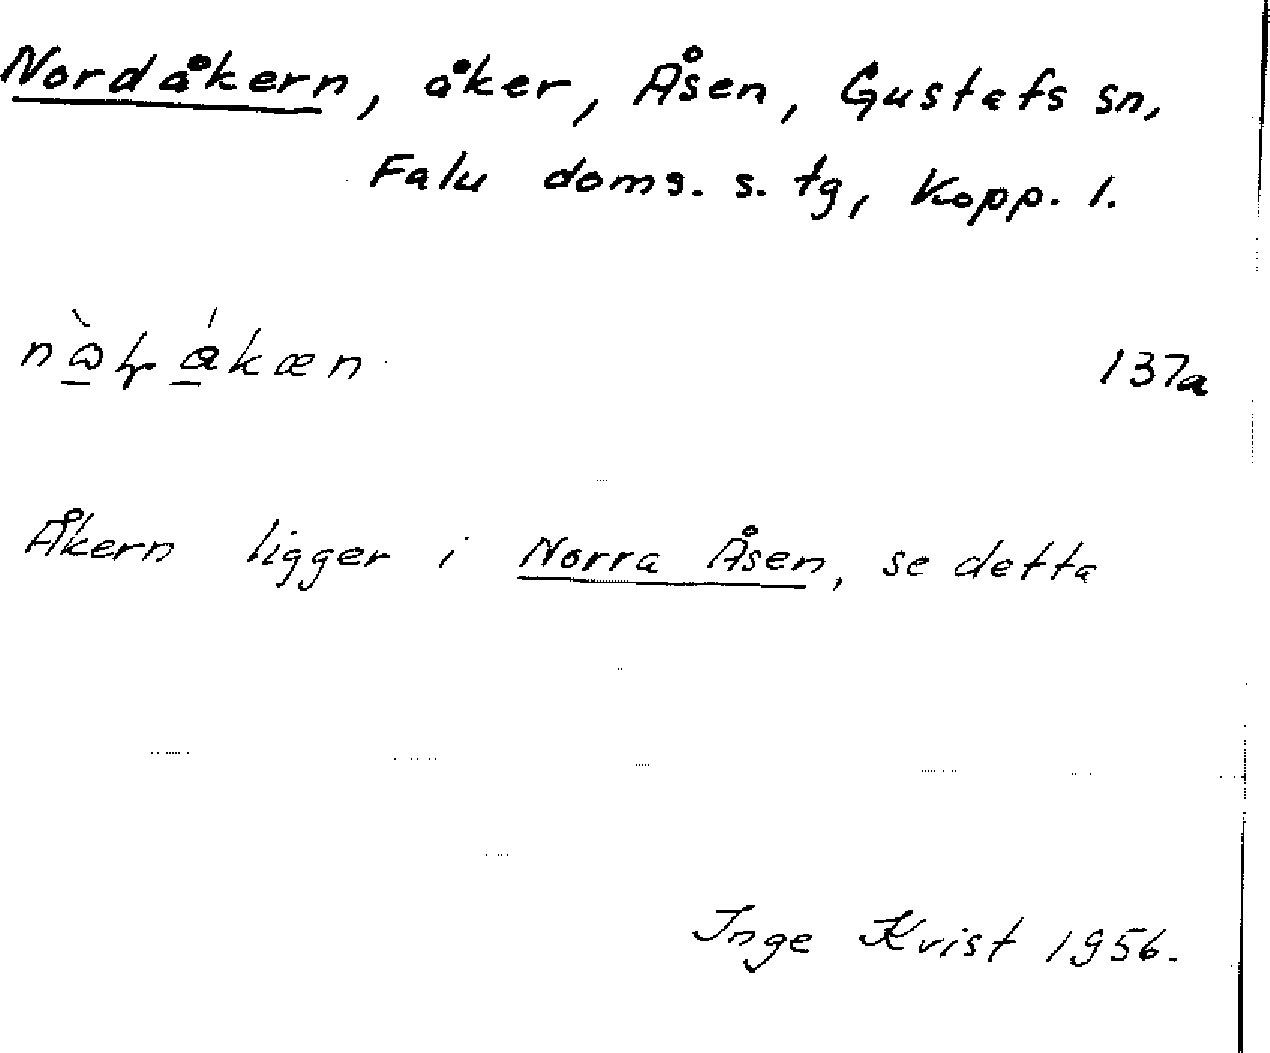 Nordåkern, åker, Åsen, Gustafs sn,
Falu doms. s. tg, Kopp. l.
137a
Åkern ligger i Norra Åsen, se detta
Inge Kvist 1956.